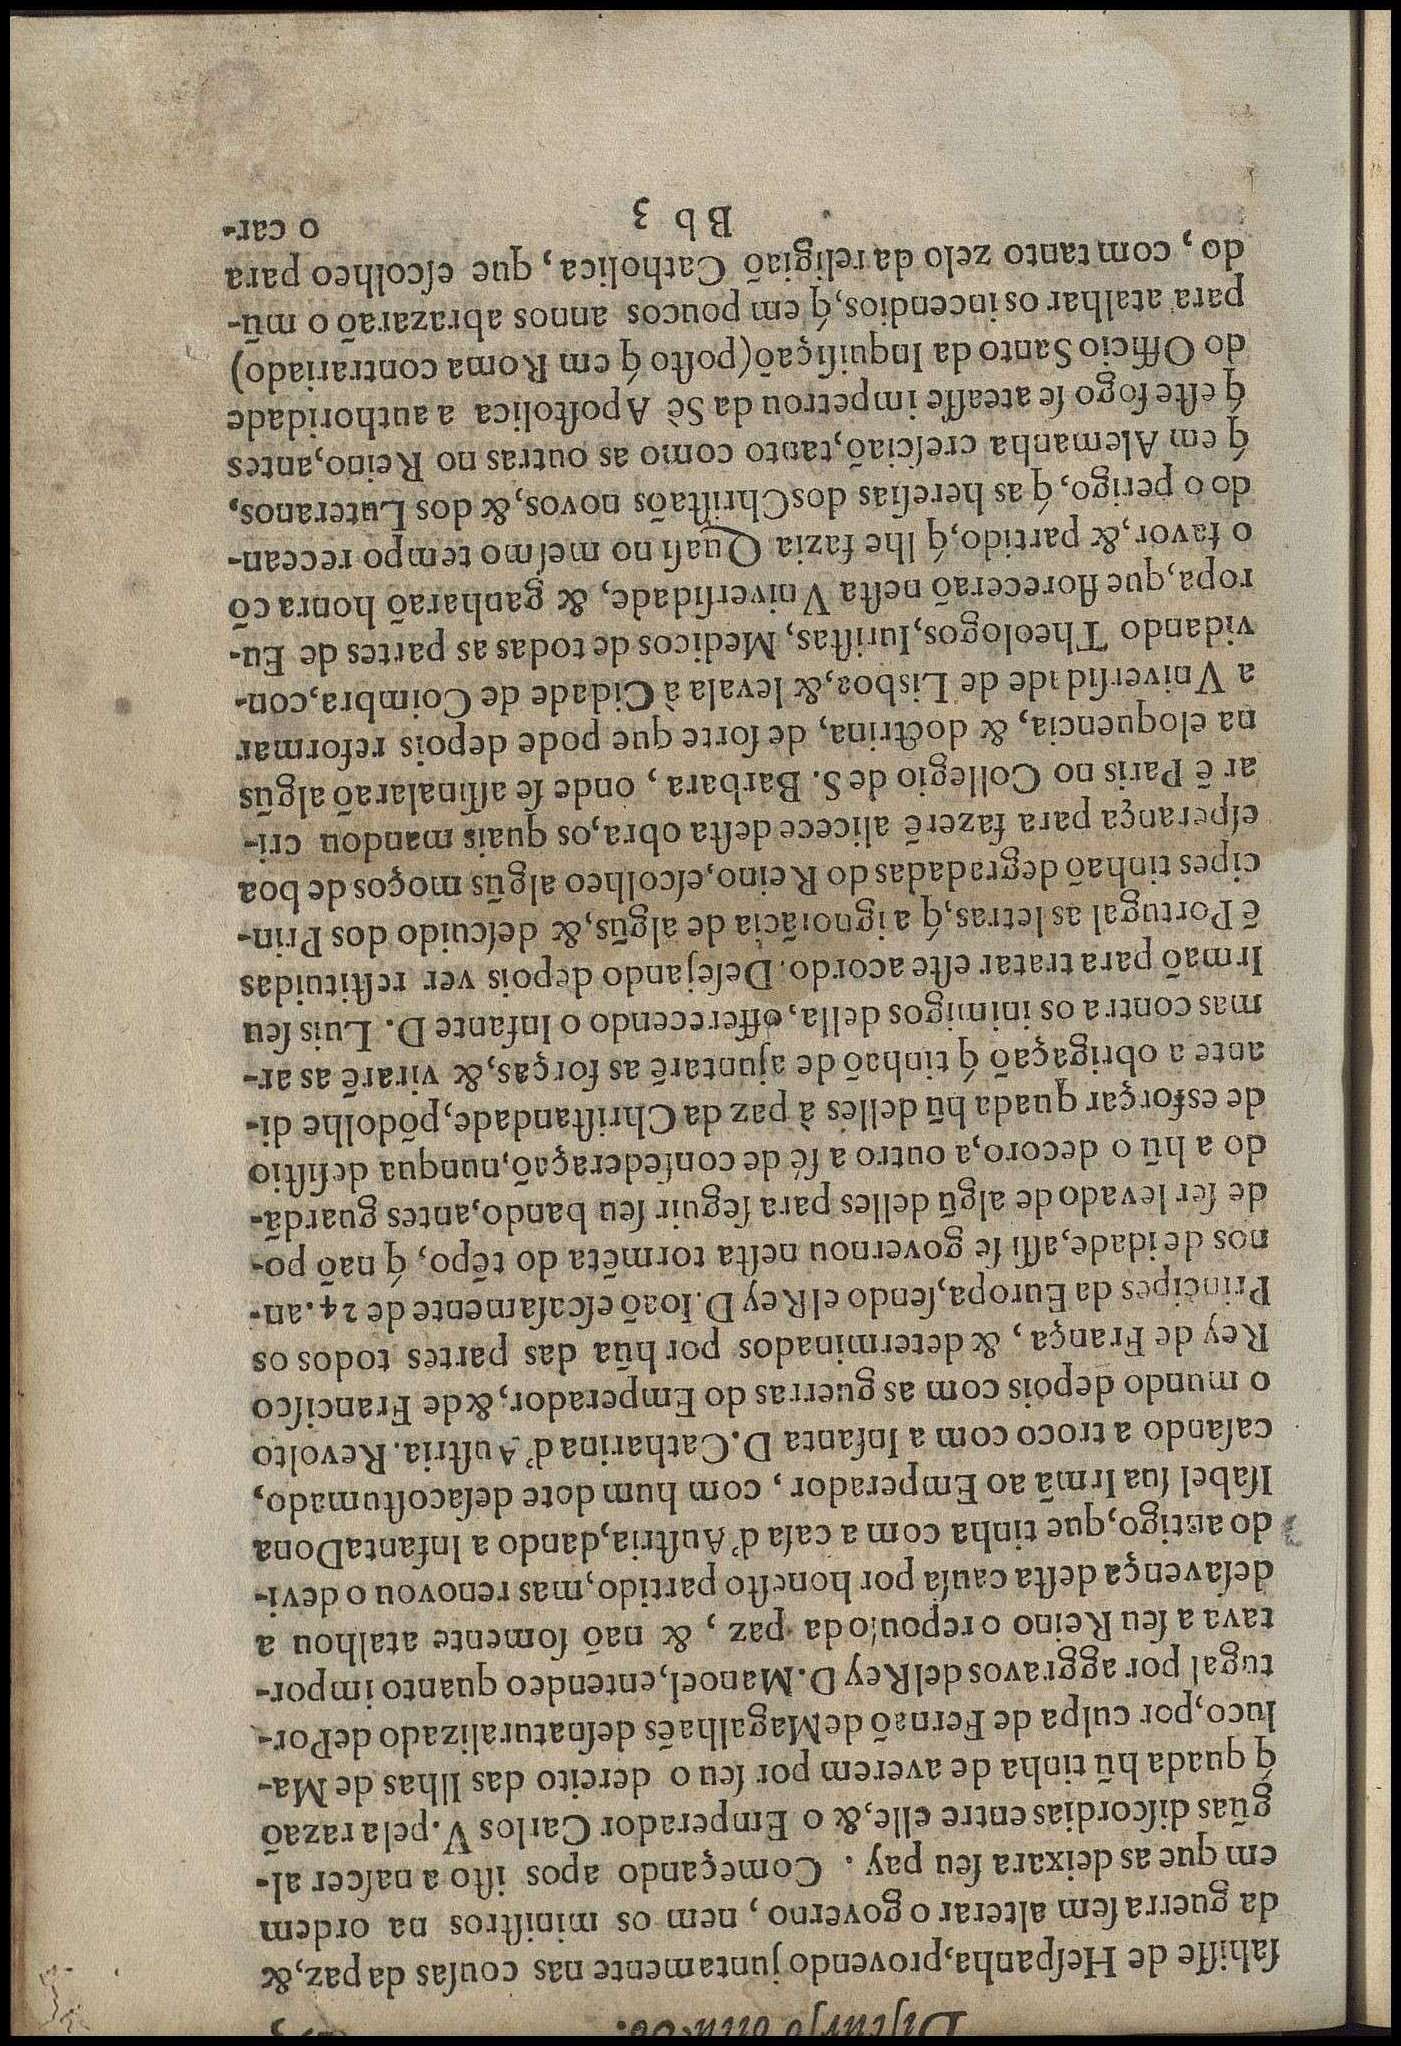 Discurso
sahisse de Hespanha, provendo juntamente nas cousas da paz, &
da guerra sem alterar o governo, nem os ministros na ordem
em que as deixara seu pay. Começando apos isto a nascer al-
gũas discordias entre elle, & o Emperador Carlos V. pela razaõ
q́ quada hũ tinha de averem por seu o dereito das Ilhas de Ma-
luco, por culpa de Fernaõ de Magalhaẽs desnaturalizado de Por-
tugal por aggravos delRey D. Manoel, entendeo quanto impor-
tava a seu Reino o repouso da paz, & naõ somente atalhou a
desavença desta causa por honesto partido, mas renovou o devi-
do antigo, que tinha com a casa d'Austria, dando a Infanta Dona
Isabel sua Irmã ao Emperador, com hum dote desacostumado,
casando a troco com a Infanta D. Catharina d'Austria. Revolto
o mundo depois com as guerras do Emperador, & de Francisco
Rey de França, & determinados por hũa das partes todos os
Principes da Europa, sendo elRey D. Ioaõ escasamente de 24. an-
nos de idade, assi se governou nesta tormẽta do tẽpo, q́ naõ po-
de ser levado de algũ delles para seguir seu bando, antes guardã-
do a hũ o decoro, a outro a fé de confederaçaõ, nunqua desistio
de esforçar quada hũ delles à paz da Christandade, põdolhe di-
ante a obrigaçaõ q́ tinhaõ de ajuntarẽ as forças, & virarẽ as ar-
mas contra os inimigos della, offerecendo o Infante D. Luis seu
Irmaõ para tratar este acordo. Desejando depois ver restituidas
ẽ Portugal as letras, q́ a ignorãcia de algũs, & descuido dos Prin-
cipes tinhaõ degradadas do Reino, escolheo algũs moços de boa
esperança para fazerẽ alicece desta obra, os quais mandou cri-
ar ẽ Paris no Collegio de S. Barbara, onde se assinalaraõ algũs
na eloquencia, & doctrina, de sorte que pode depois reformar
a Vniversidade de Lisboa, & levala à Cidade de Coimbra, con-
vidando Theologos, Iuristas, Medicos de todas as partes de Eu-
ropa, que floreceraõ nesta Vniversidade, & ganharaõ honra cõ
o favor, & partido, q́ lhe fazia Quasi no mesmo tempo recean-
do o perigo, q́ as heresias dos Christaõs novos, & dos Luteranos,
q́ em Alemanha cresciaõ, tanto como as outras no Reino, antes
q́ este fogo se ateasse impetrou da Sè Apostolica a authoridade
do Officio Santo da Inquisiçaõ (posto q́ em Roma contrariado)
para atalhar os incendios, q́ em poucos annos abrazaraõ o mũ-
do, com tanto zelo da religiaõ Catholica, que escolheo para
Bb 3
o car-